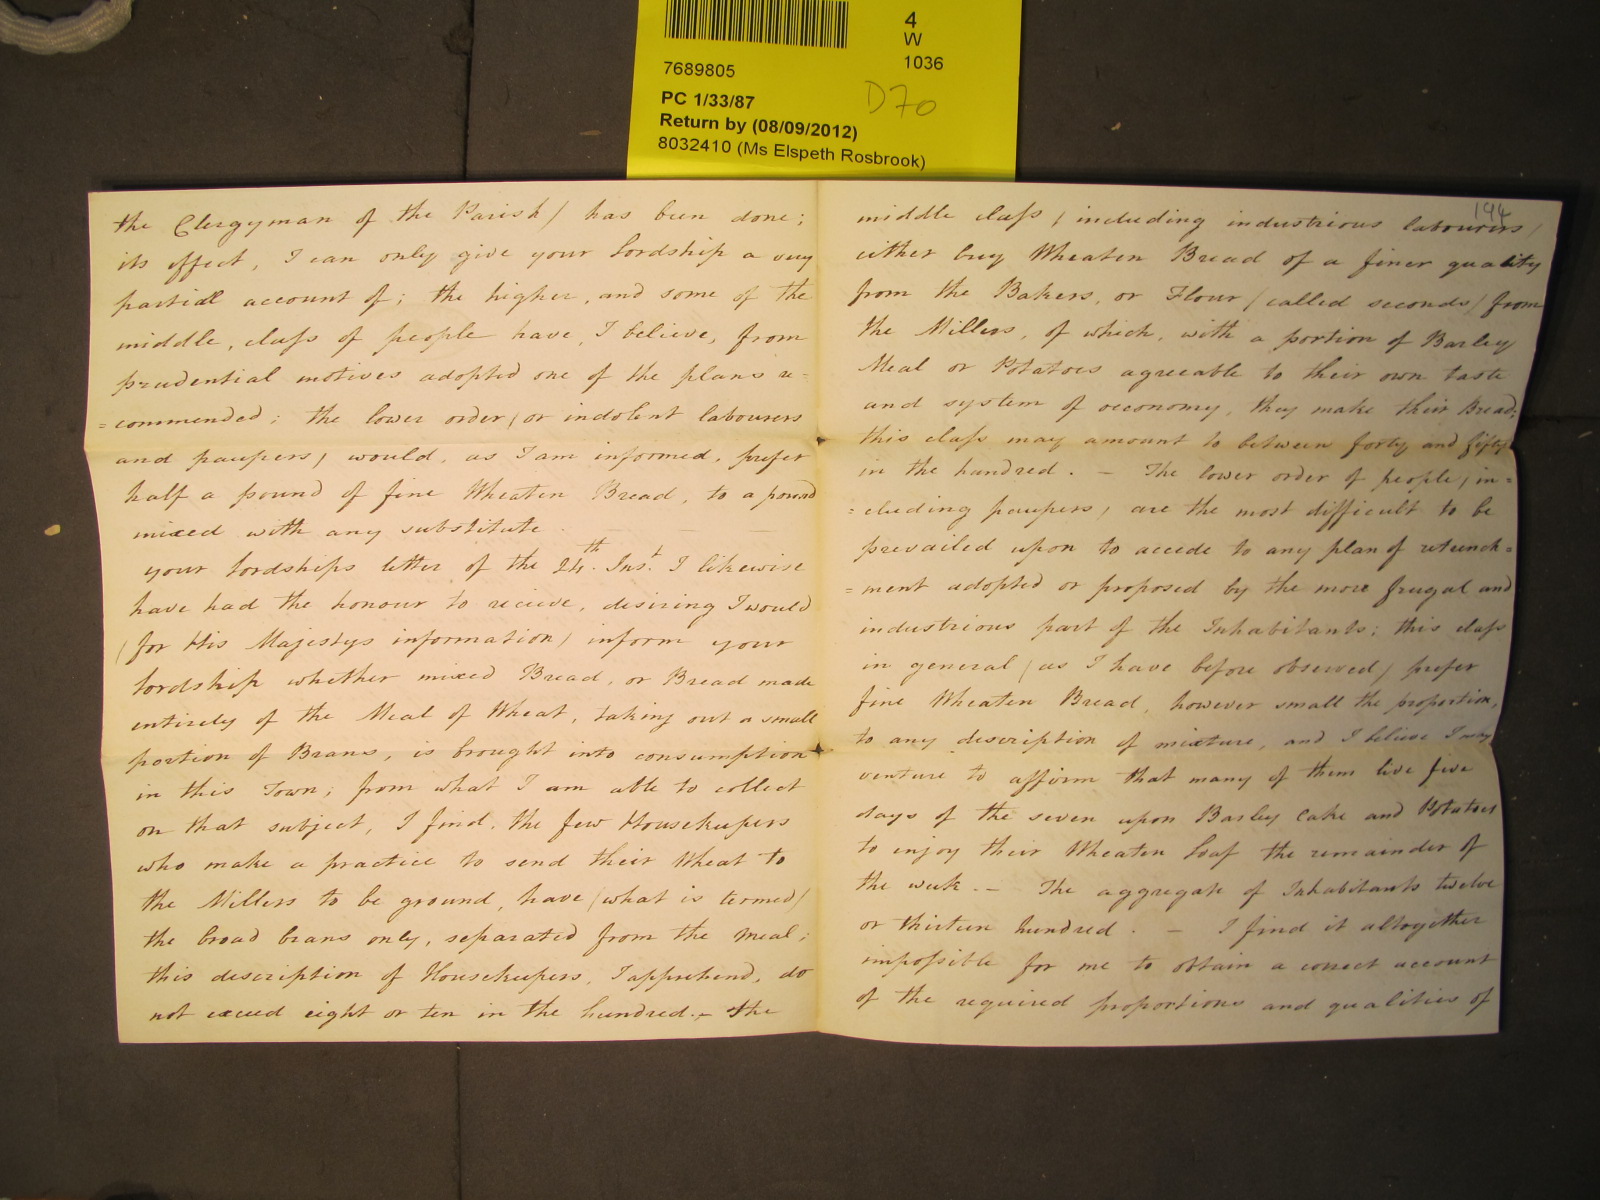 4
W
1036
7689805
PC 1/33/87
D70
Return by (08/09/2012)
8032410 (Ms Elspeth Rosbrook)
the Clergyman of the Parish/ has been done;
its effect, I can only give your Lordship a very
partial account of; the higher, and some of the
middle, class of people have, I believe, from
prudential motives adopted one of the plans re=
=commended; the lower order/or indolent labourers
and paupers/ would, as I am informed, prefer
half a pound of fine Wheaten Bread, to a pound
mixed with any substitute.
your Lordships letter of the 24th. Inst. I likewise
have had the honour to recieve, desiring I would
/for His Majestys information/ inform your
Lordship whether mixed Bread, or Bread made
entirely of the Meal of Wheat, taking out a small
portion of Brans, is brought into consumption
in this Town; from what I am able to collect
on that subject, I find, the few Housekeepers
who make a practice to send their Wheat to
the Millers to be ground, have /what is termed/
the broad brans only, separated from the Meal;
this description of Housekeepers, I apprehend, do
not exceed eight or ten in the hundred. - The
194
middle class /including industrious labourers/
either buy Wheaten Bread of a finer quality
from the Bakers, or Flour /called seconds/ from
the Millers, of which, with a portion of Barley
Meal or Potatoes agreeable to their own taste
and system of oeconomy, they make their Bread;
this class may amount to between forty and fifty
in the hundred. - The lower order of people/in=
=cluding paupers/ are the most difficult to be
prevailed upon to accede to any plan of retrench=
=ment adopted or proposed by the more frugal and
industrious part of the Inhabitants; this class
in general /as I have before observed/ prefer
fine Wheaten Bread, however small the proportion,
to any description of mixture, and I believe I may
venture to affirm that many of them live five
days of the seven upon Barley Cake and Potatoes
to enjoy their Wheaten Loaf the remainder of
the week. - The aggregate of Inhabitants twelve
or thirteen hundred. - I find it altogether
impossible for me to obtain a correct account
of the required proportions and qualities of